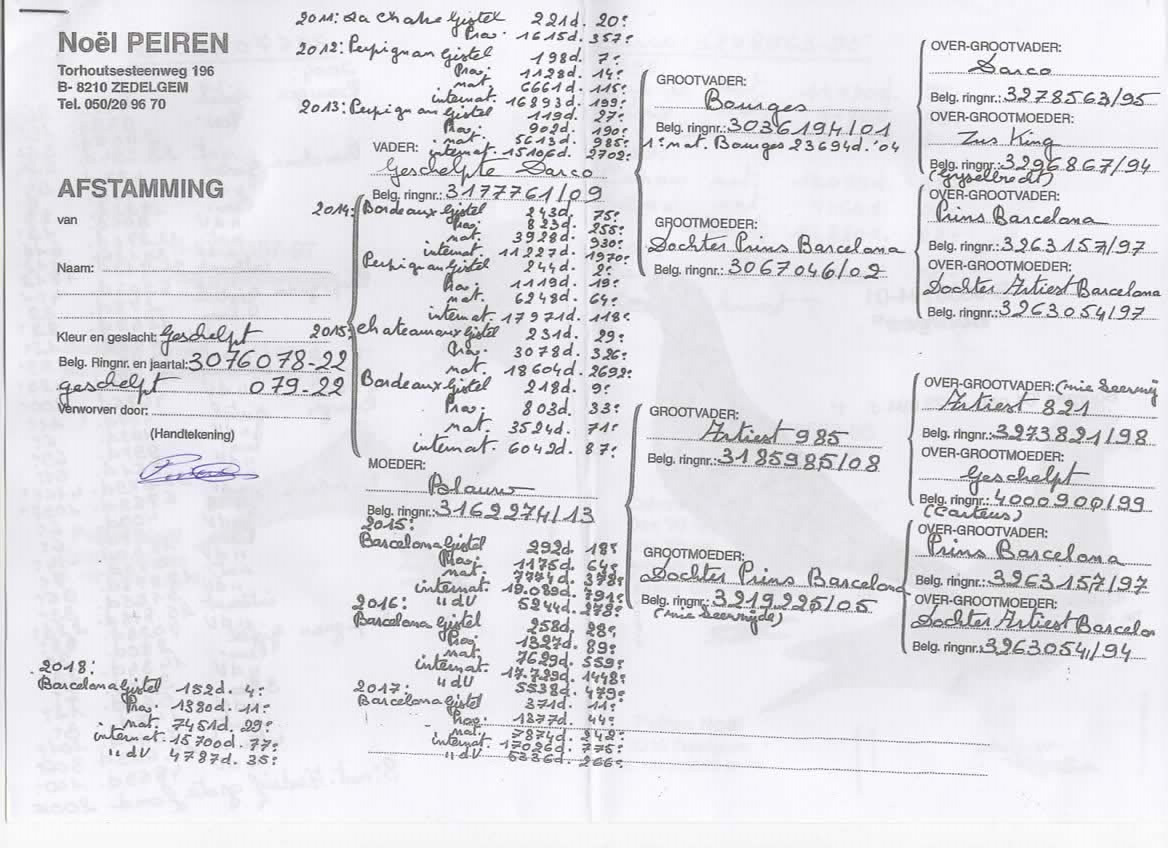 Noël PEIREN
Torhoutsesteenweg 196
B- 8210 ZEDELGEM
Tel. 050/20 96 70
AFSTAMMING
van
Naam:
Kleur en geslacht: Geschelpt
Belg. Ringnr. en jaartal: 3076078-22
geschelpt 079-22
Verworven door:
(Handtekening)
2018:
Barcelona Gistel 152d. 4e
Prov. 1380d. 11e
nat. 7451d. 29e
internat. 15700d. 77e
"dV 4787d. 35e
2011: La Chatre Gistel 221d. 20e
Prov. 1615d. 357e
2012: Perpignan Gistel 198d. 7e
Prov. 1128d. 14e
nat. 6661d. 115e
internat. 16893d. 199e
2013: Perpignan Gistel 119d. 27e
Prov. 902d. 190e
nat. 5613d. 985e
internat. 15106d. 2702e
VADER:
Geschelpte Darco
Belg. ringnr.: 3177761/09
2014: Bordeaux Gistel 243d. 75e
Prov. 823d. 255e
nat. 3928d. 930e
internat. 11227d. 1970e
Perpignan Gistel 244d. 2e
Prov. 1119d. 19e
nat. 6248d. 64e
internat. 17971d. 118e
2015: chateauroux Gistel 231d. 29e
Prov. 3078d. 326e
nat. 18604d. 2692e
Bordeaux Gistel 218d. 9e
Prov. 803d. 33e
nat. 3524d. 71e
internat. 6042d. 87e
MOEDER:
Blauw
Belg. ringnr.: 3162274/13
2015:
Barcelona Gistel 292d. 18e
Prov. 1175d. 64e
nat. 7774d. 378e
internat. 19.089d. 791e
"dV 5244d. 278e
2016:
Barcelona Gistel 258d. 28e
Prov. 1327d. 89e
nat. 7629d. 559e
internat. 17.729d. 1448e
"dV 5538d. 479e
2017:
Barcelona Gistel 371d. 11e
Prov. 1377d. 44e
nat. 7874d. 342e
internat. 17026d. 775e
"dV 5336d. 266e
GROOTVADER:
Bourges
Belg. ringnr.: 3036194/01
1e nat. Bourges 23694d. '04
GROOTMOEDER:
Dochter Prins Barcelona
Belg. ringnr.: 3067046/02
GROOTVADER:
Artiest 985
Belg. ringnr.: 3185985/08
GROOTMOEDER:
Dochter Prins Barcelona
Belg. ringnr.: 3219225/05
OVER-GROOTVADER:
Darco
Belg. ringnr.: 3278563/95
OVER-GROOTMOEDER:
Zus King
Belg. ringnr.: 3296867/94
(Gyselbrecht)
OVER-GROOTVADER:
Prins Barcelona
Belg. ringnr.: 3263157/97
OVER-GROOTMOEDER:
Dochter Artiest Barcelona
Belg. ringnr.: 3263054/97
OVER-GROOTVADER:
Artiest 821
Belg. ringnr.: 3273821/98
OVER-GROOTMOEDER:
Geschelpt
Belg. ringnr.: 4000900/99
(Carteus)
OVER-GROOTVADER:
Prins Barcelona
Belg. ringnr.: 3263157/97
OVER-GROOTMOEDER:
Dochter Artiest Barcelon
Belg. ringnr.: 3263054/94